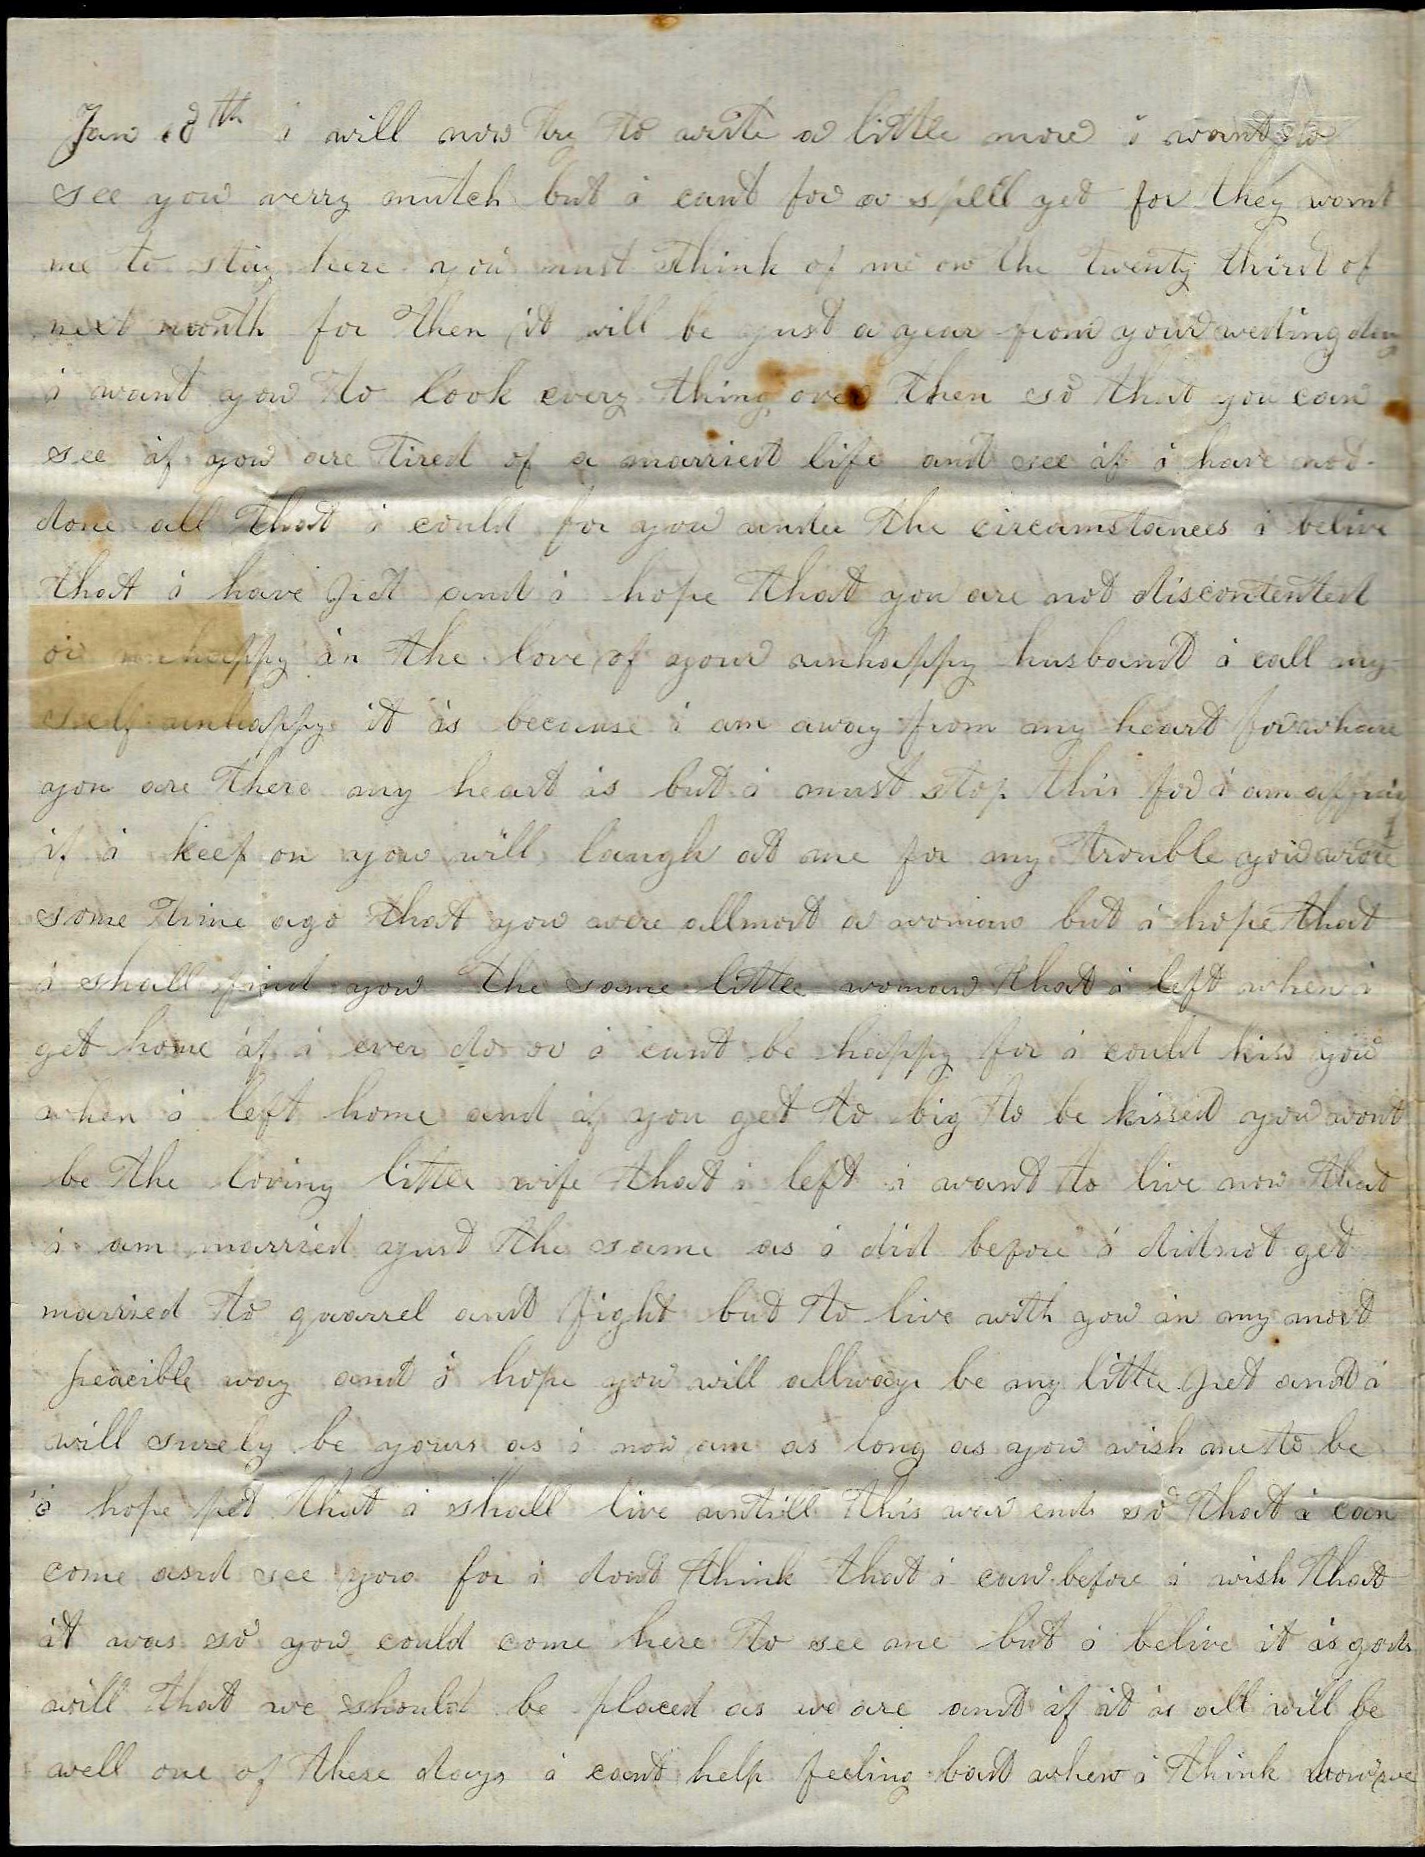 Jan 18th i will now try to write a little more i want to
see you verry mutch but i cant for a spell yet for they want
me to stay here you must think of me on the twenty third of
next month for then it will be just a year from your weding day
i want you to look every thing over then so that you can
see if you are tired of a married life and see if i have not
done all that i could for you under the circumstances i belive
that i have pet and i hope that you are not discontented
or unhappy in the love of your unhappy husband i call my
self unhappy it is because i am away from my heart for whare
you are there my heart is but i must stop this for i am affraid
if i keep on you will laugh at me for my trouble you wrote
some time ago that you were allmost a woman but i hope that
i shall find you the same little woman that i left when i
get home if i ever do or i cant be happy for i could kiss you
when i left home and if you get to big to be kissed you wont
be the loving little wife that i left i want to live now that
i am married just the same as i did before i did not get
married to quarrel and fight but to live with you in my most
peacible way and i hope you will allways be my little pet and i
will surely be yours as i now am as long as you wish me to be
i hope pet that i shall live untill this war ends so that i can
come and see you for i dont think that i can before i wish that
it was so you could come here to see me but i belive it is gods
will that we should be placed as we are and if it is all will be
well one of these days i cant help feeling bad when i think how we